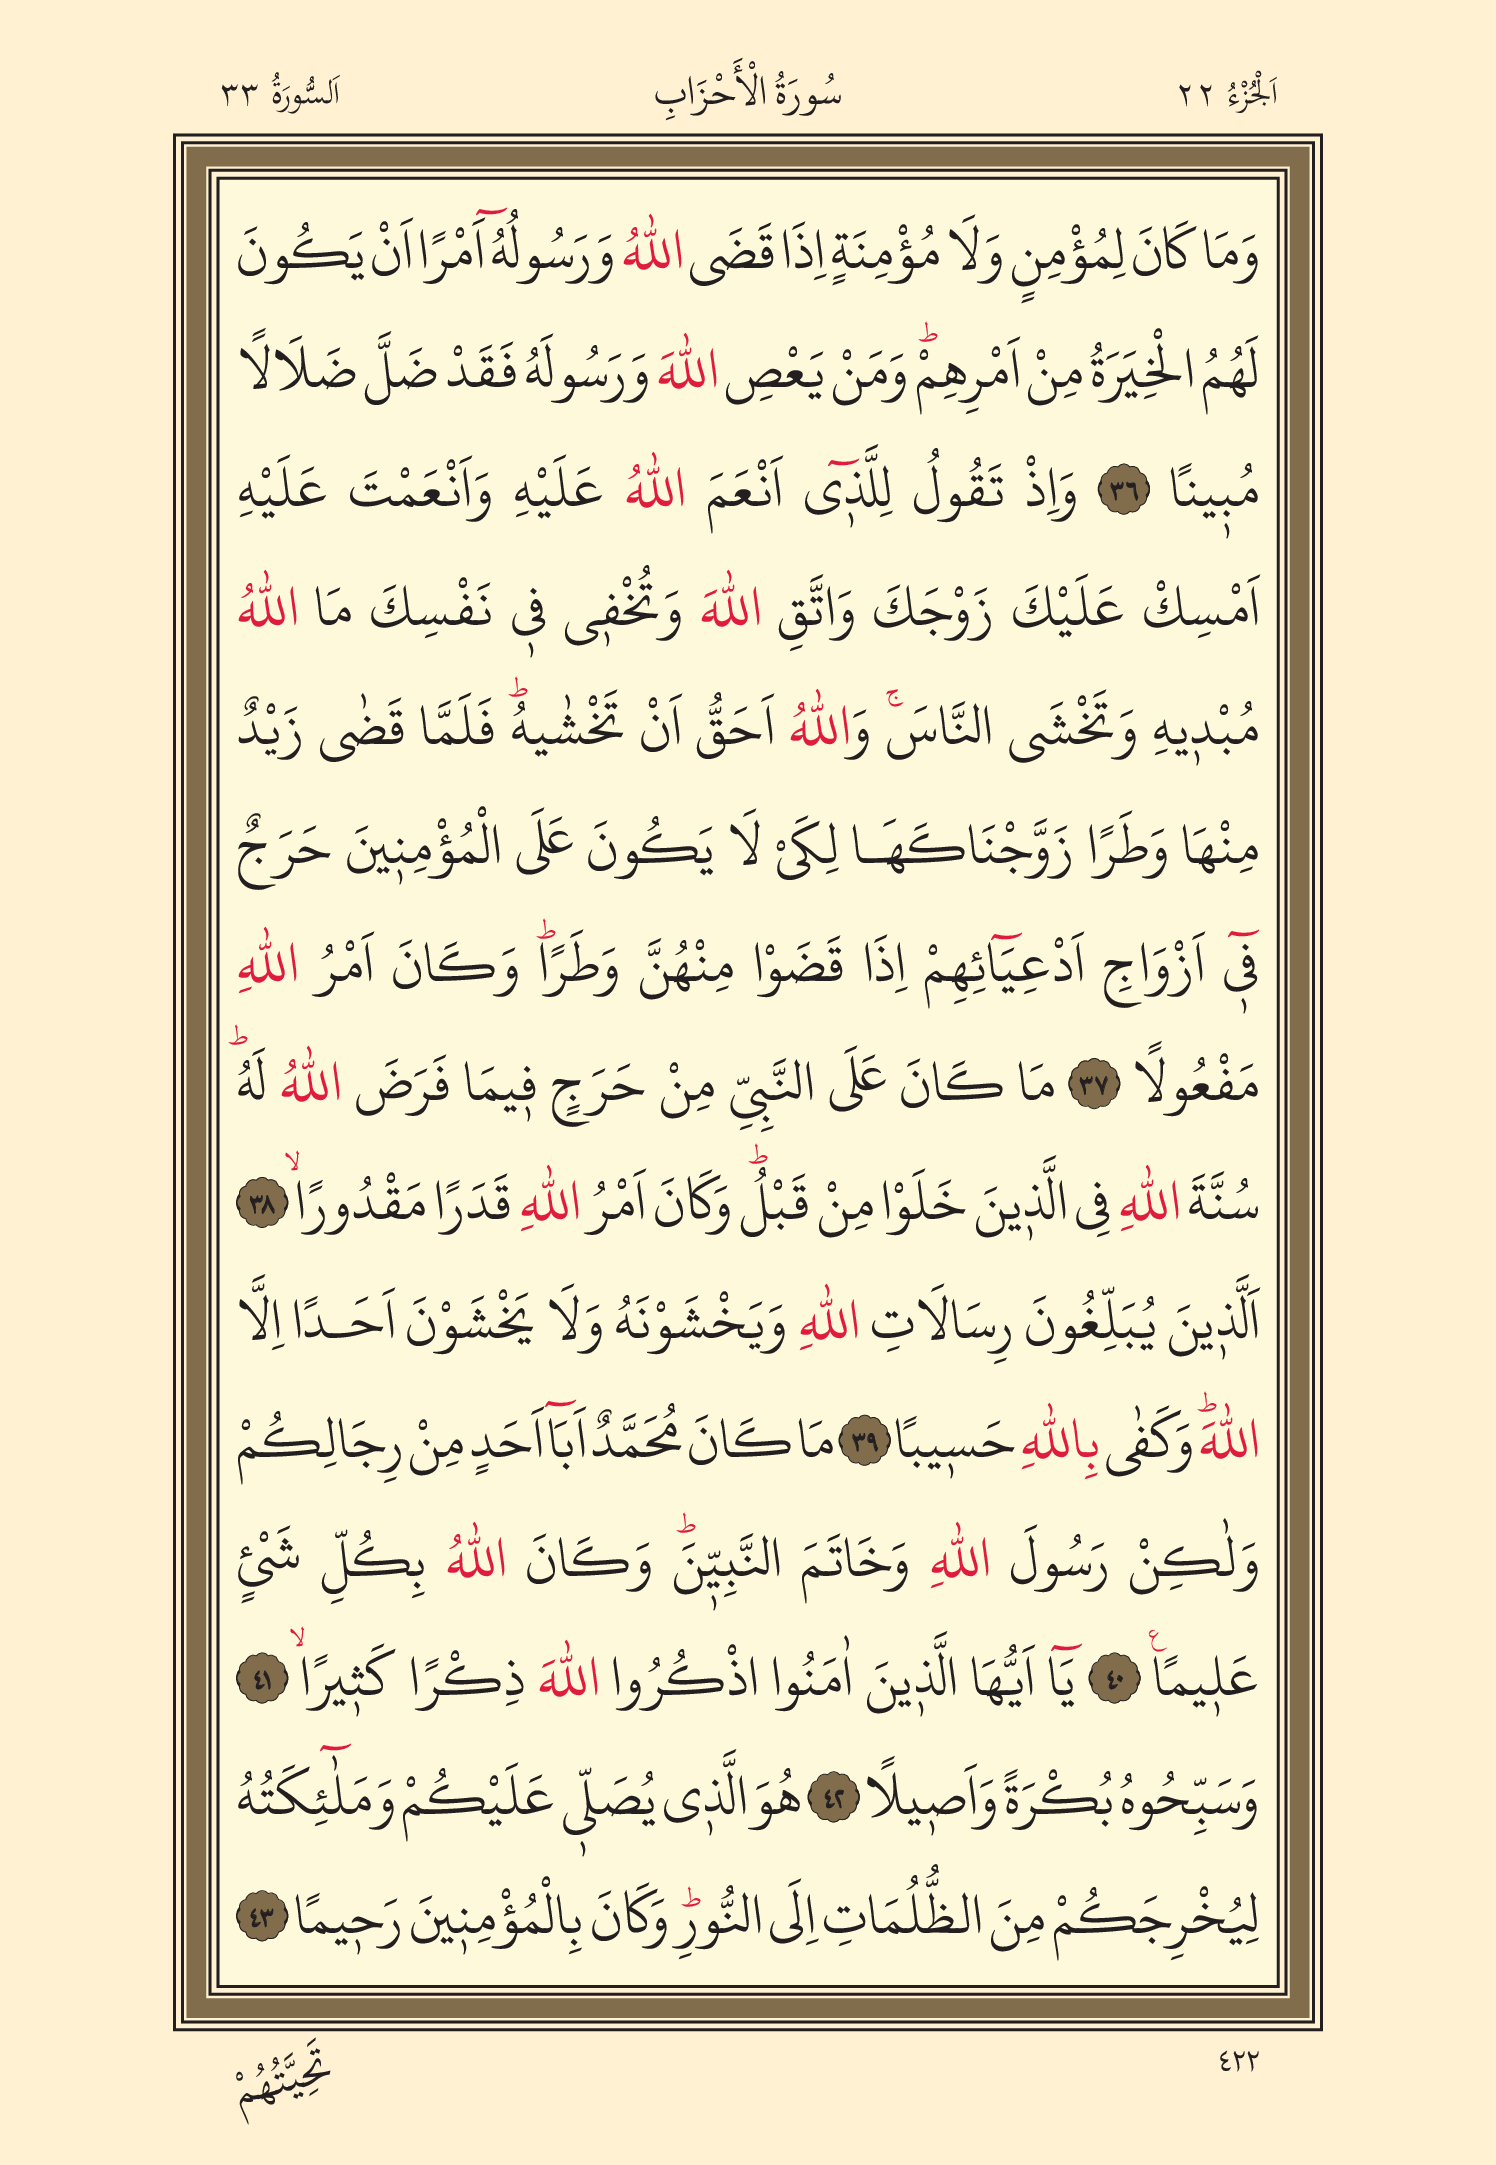 اَلْجُزْءُ ٢٢ سُورَةُ الْأَحْزَابِ اَلسُّورَةُ ٣٣
وَمَا كَانَ لِمُؤْمِنٍ وَلَا مُؤْمِنَةٍ اِذَا قَضَى اللّٰهُ وَرَسُولُهُٓ اَمْرًا اَنْ يَكُونَ
لَهُمُ الْخِيَرَةُ مِنْ اَمْرِهِمْۜ وَمَنْ يَعْصِ اللّٰهَ وَرَسُولَهُ فَقَدْ ضَلَّ ضَلَالًا
مُب۪ينًا ٣٦ وَاِذْ تَقُولُ لِلَّذ۪ٓي اَنْعَمَ اللّٰهُ عَلَيْهِ وَاَنْعَمْتَ عَلَيْهِ
اَمْسِكْ عَلَيْكَ زَوْجَكَ وَاتَّقِ اللّٰهَ وَتُخْف۪ي ف۪ي نَفْسِكَ مَا اللّٰهُ
مُبْد۪يهِ وَتَخْشَى النَّاسَۚ وَاللّٰهُ اَحَقُّ اَنْ تَخْشٰيهُۜ فَلَمَّا قَضٰى زَيْدٌ
مِنْهَا وَطَرًا زَوَّجْنَاكَهَا لِكَيْ لَا يَكُونَ عَلَى الْمُؤْمِن۪ينَ حَرَجٌ
ف۪ٓي اَزْوَاجِ اَدْعِيَٓائِهِمْ اِذَا قَضَوْا مِنْهُنَّ وَطَرًاۜ وَكَانَ اَمْرُ اللّٰهِ
مَفْعُولًا ٣٧ مَا كَانَ عَلَى النَّبِيِّ مِنْ حَرَجٍ ف۪يمَا فَرَضَ اللّٰهُ لَهُۜ
سُنَّةَ اللّٰهِ فِي الَّذ۪ينَ خَلَوْا مِنْ قَبْلُۜ وَكَانَ اَمْرُ اللّٰهِ قَدَرًا مَقْدُورًاۙ ٣٨
اَلَّذ۪ينَ يُبَلِّغُونَ رِسَالَاتِ اللّٰهِ وَيَخْشَوْنَهُ وَلَا يَخْشَوْنَ اَحَدًا اِلَّا
اللّٰهَۜ وَكَفٰى بِاللّٰهِ حَس۪يبًا ٣٩ مَا كَانَ مُحَمَّدٌ اَبَٓا اَحَدٍ مِنْ رِجَالِكُمْ
وَلٰكِنْ رَسُولَ اللّٰهِ وَخَاتَمَ النَّبِيّ۪نَۜ وَكَانَ اللّٰهُ بِكُلِّ شَيْءٍ
عَل۪يمًا۟ ٤٠ يَٓا اَيُّهَا الَّذ۪ينَ اٰمَنُوا اذْكُرُوا اللّٰهَ ذِكْرًا كَث۪يرًاۙ ٤١
وَسَبِّحُوهُ بُكْرَةً وَاَص۪يلًا ٤٢ هُوَ الَّذ۪ي يُصَلّ۪ي عَلَيْكُمْ وَمَلٰٓئِكَتُهُ
لِيُخْرِجَكُمْ مِنَ الظُّلُمَاتِ اِلَى النُّورِۜ وَكَانَ بِالْمُؤْمِن۪ينَ رَح۪يمًا ٤٣
٤٢٢ تَحِيَّتُهُمْ